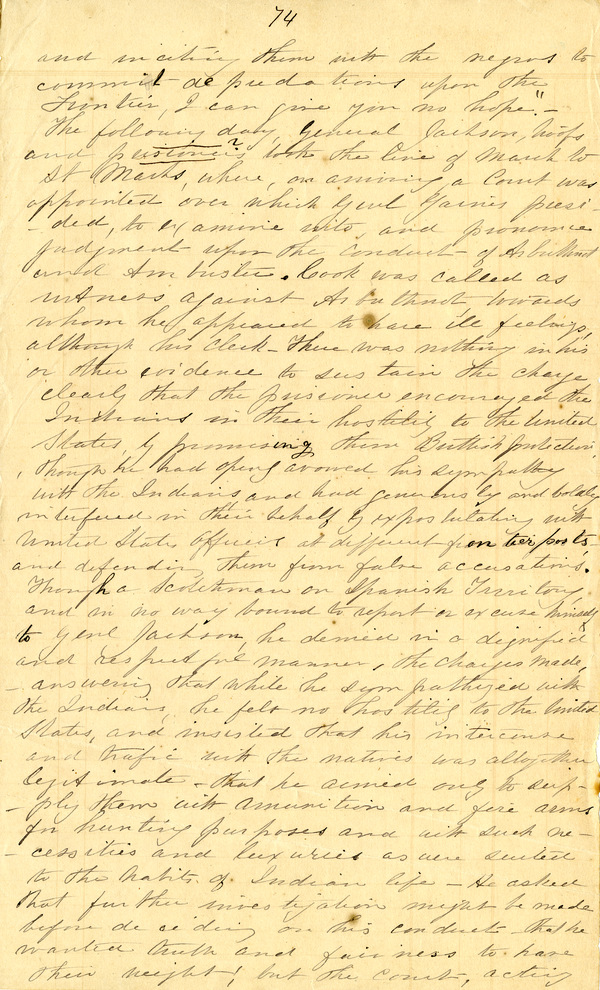 74
and inciting them with the negros to
commit depredations upon the
Frontier, I can give you no hope."-
The following day General Jackson, troops
and prisoners, took the line of March to
St Marks, where, on arriving a Court was
appointed over which Genl Gaines presi-
-ded, to examine into, and pronounce
judgment upon the conduct of Arbuthnot
and Ambuster. Cook was called as
witness against Arbuthnot towards
whom he appeared to have ill feelings,
although his Clerk - There was nothing in his
or other evidence to sustain the charge
clearly that the prisioner encouraged the
Indians in their hostility to the United
States, by promising them British protection,
though he had openly avowed his sympathy
with the Indians and had generously and boldly
interfered in their behalf by expostulating with
United State officers at different frontier posts-
and defending them from false accusations.
Though a Scotchman on Spanish Territory
and in no way bound to report or excuse himself
to Genl Jackson, he denied in a dignified
and respectful manner, the charges made,
- answering that while he sympathized with
the Indians, he felt no hostility to the United
States, and insisted that his intercourse
and trafic with the natives was altogether
legitimate - that he aimed only to sup-
-ply them with amunition and fire arms
for hunting purposes and with such ne-
-cessities and luxuries as were suited
to the habits of Indian life - He asked
that further investigation might be made
before deciding on his conduct - that he
wanted truth and fairness to have
their weight; but the Court, acting